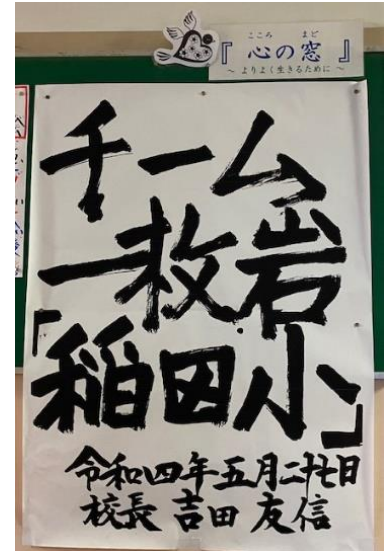 こころ まど
『 心の窓 』
～ よりよく生きるために ～
チーム
一枚岩
「稲田小」
令和四年五月二十七日
校長 吉田 友信